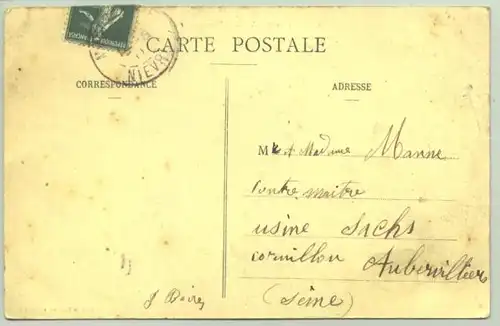 CARTE POSTALE
NIEVRE
CORRESPONDANCE
ADRESSE
Mr et Madame Manne
contre maitre
usine Sachs
cornillon Aubervillier
(Seine)